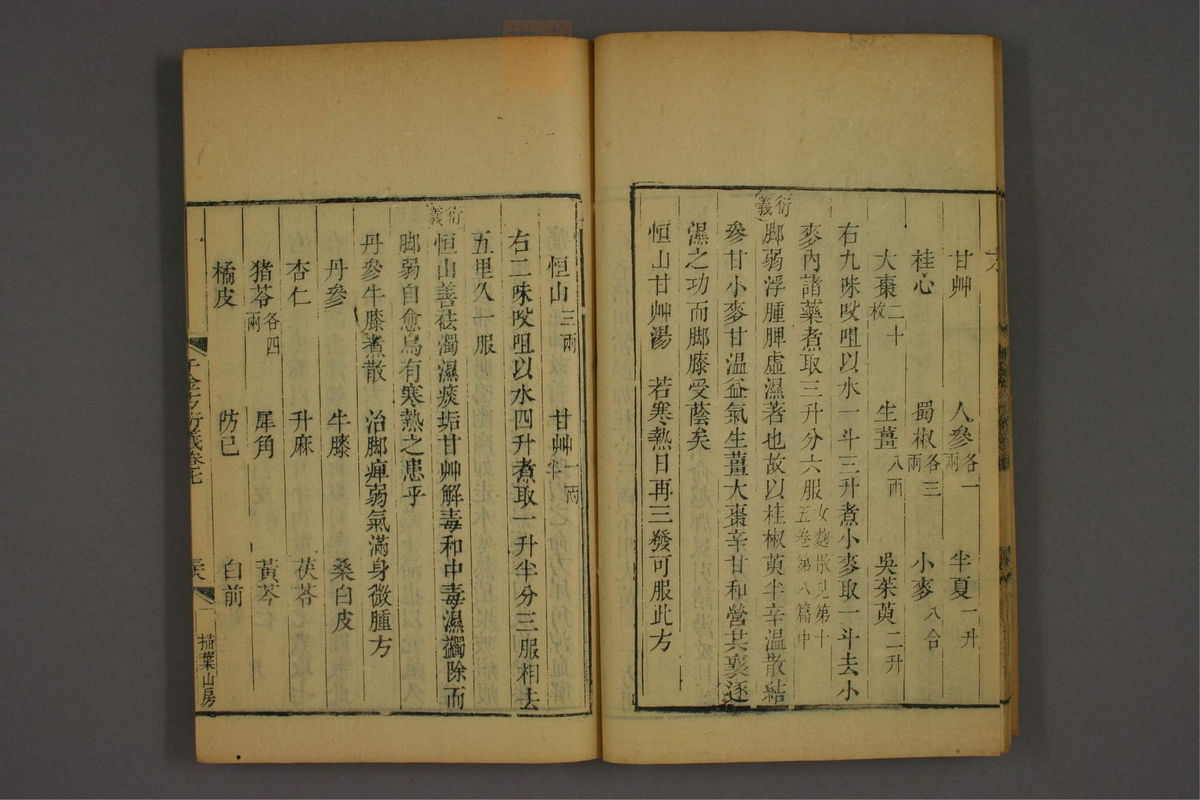 甘艸 人參各一兩 半夏一升
桂心 蜀椒各三兩 小麥八合
大棗二十枚 生薑八兩 吳茱萸二升
右九味㕮咀以水一斗三升煮小麥取一斗去小
麥內諸藥煮取三升分六服女麴散見第十五卷第八篇中
衍義
脚弱浮腫脾虛濕著也故以桂椒萸半辛溫散結
參甘小麥甘溫益氣生薑大棗辛甘和營共襄逐
濕之功而脚膝受蔭矣
恒山甘艸湯 若寒熱日再三發可服此方
恒山三兩 甘艸一兩半
右二味㕮咀以水四升煮取一升半分三服相去
五里久一服
衍義
恒山善祛濁濕痰垢甘艸解毒和中毒濕蠲除而
脚弱自愈烏有寒熱之患乎
丹參牛膝煮散 治脚痺弱氣滿身微腫方
丹參 牛膝 桑白皮
杏仁 升麻 茯苓
猪苓各四兩 犀角 黃芩
橘皮 防已 白前
千金方衍義卷七
掃葉山房